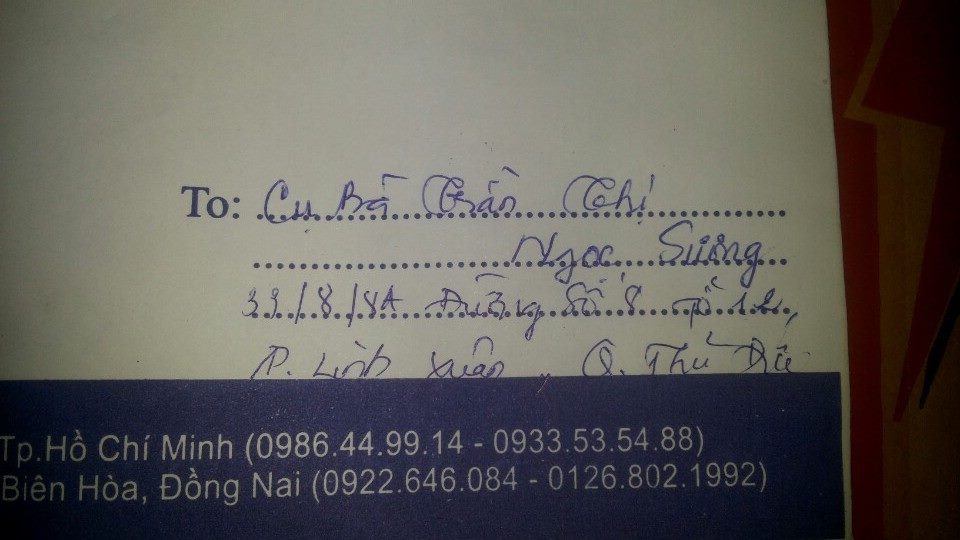 To: Cụ Bà Trần Thị
Ngọc Sương
33/8/8A Đường Số 8 tổ 12,
P. Linh Xuân, Q. Thủ Đức
Tp.Hồ Chí Minh (0986.44.99.14 - 0933.53.54.88)
Biên Hòa, Đồng Nai (0922.646.084 - 0126.802.1992)